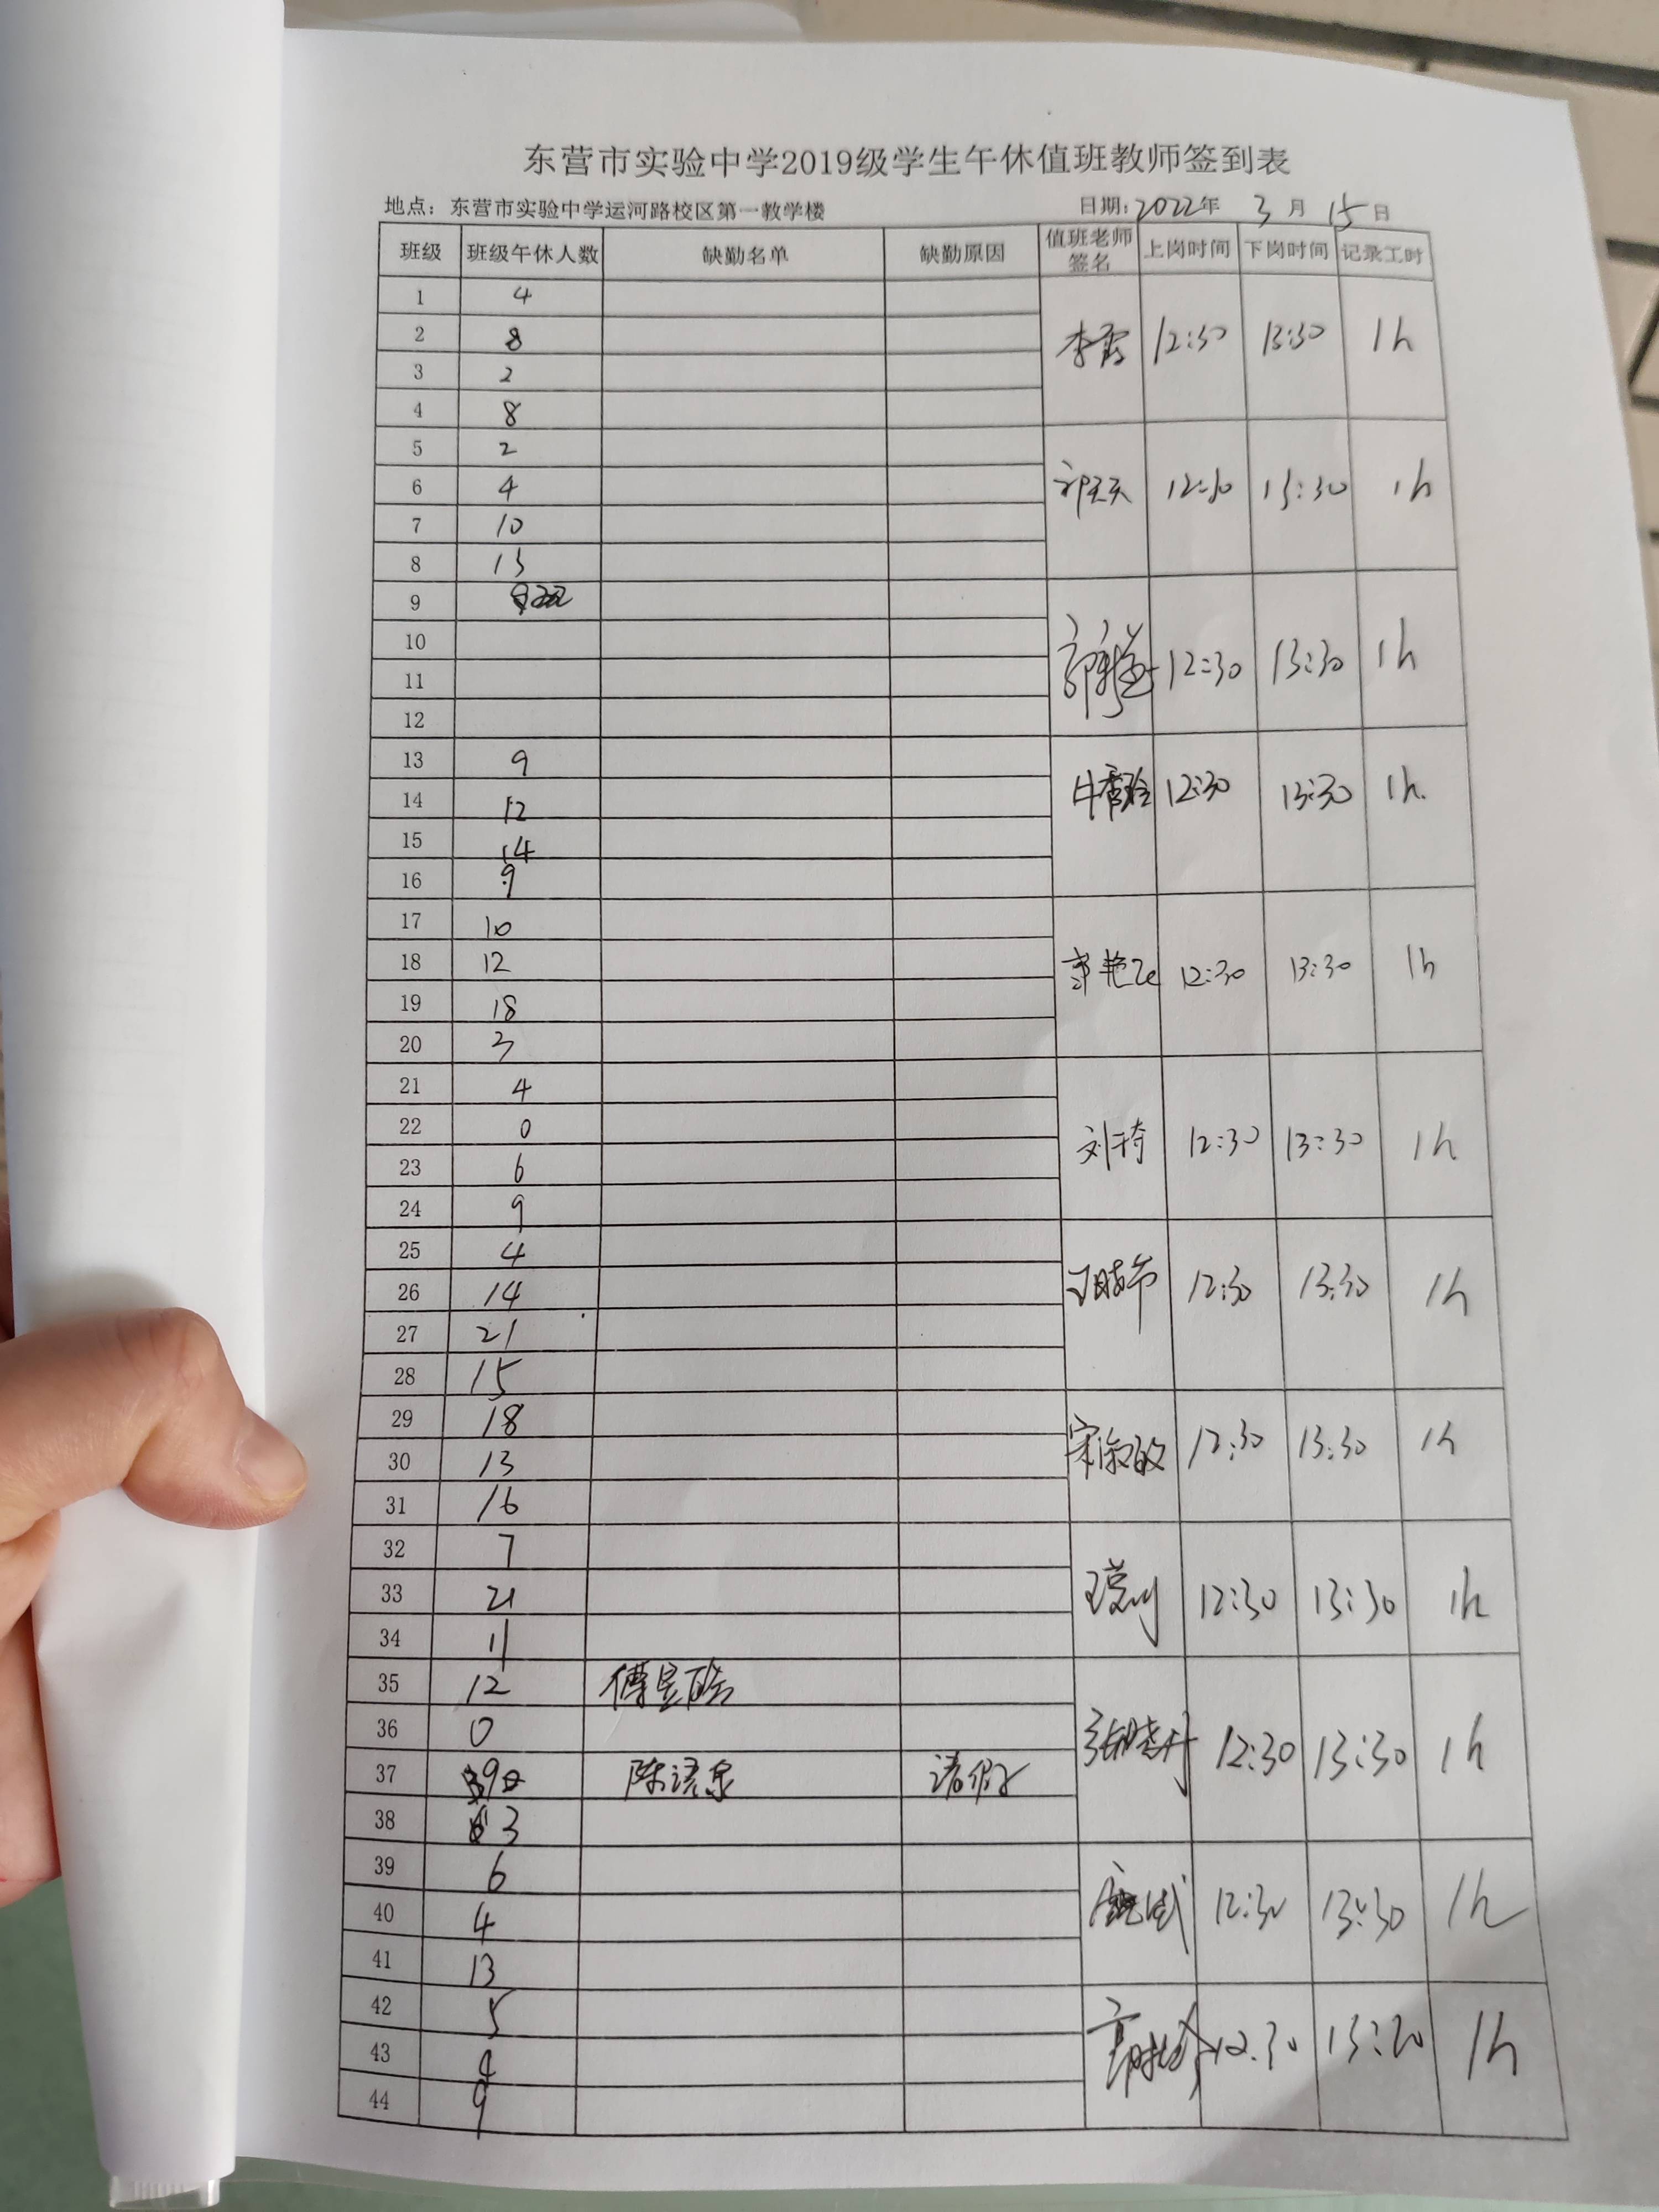 东营市实验中学2019级学生午休值班教师签到表
地点：东营市实验中学运河路校区第一教学楼 日期：2022年 3月 15日
班级 班级午休人数 缺勤名单 缺勤原因 值班老师签名 上岗时间 下岗时间 记录工时
1 4
2 8 李霞 12:30 13:30 1h
3 2
4 8
5 2
6 4 12:30 13:30 1h
7 10
8 13
9
10
11 12:30 13:30 1h
12
13 9
14 12 12:30 13:30 1h.
15 14
16 9
17 10
18 12 12:30 13:30 1h
19 18
20 3
21 4
22 0 刘琦 12:30 13:30 1h
23 6
24 9
25 4
26 14 12:30 13:30 1h
27 21
28 15
29 18
30 13 宋淑敏 12:30 13:30 1h
31 16
32 7
33 21 12:30 13:30 1h
34 11
35 12 傅昱皓
36 0 张晓丹 12:30 13:30 1h
37 9 陈语泉 请假
38 3
39 6
40 4 12:30 13:30 1h
41 13
42 5
43 4 12:30 13:30 1h
44 9